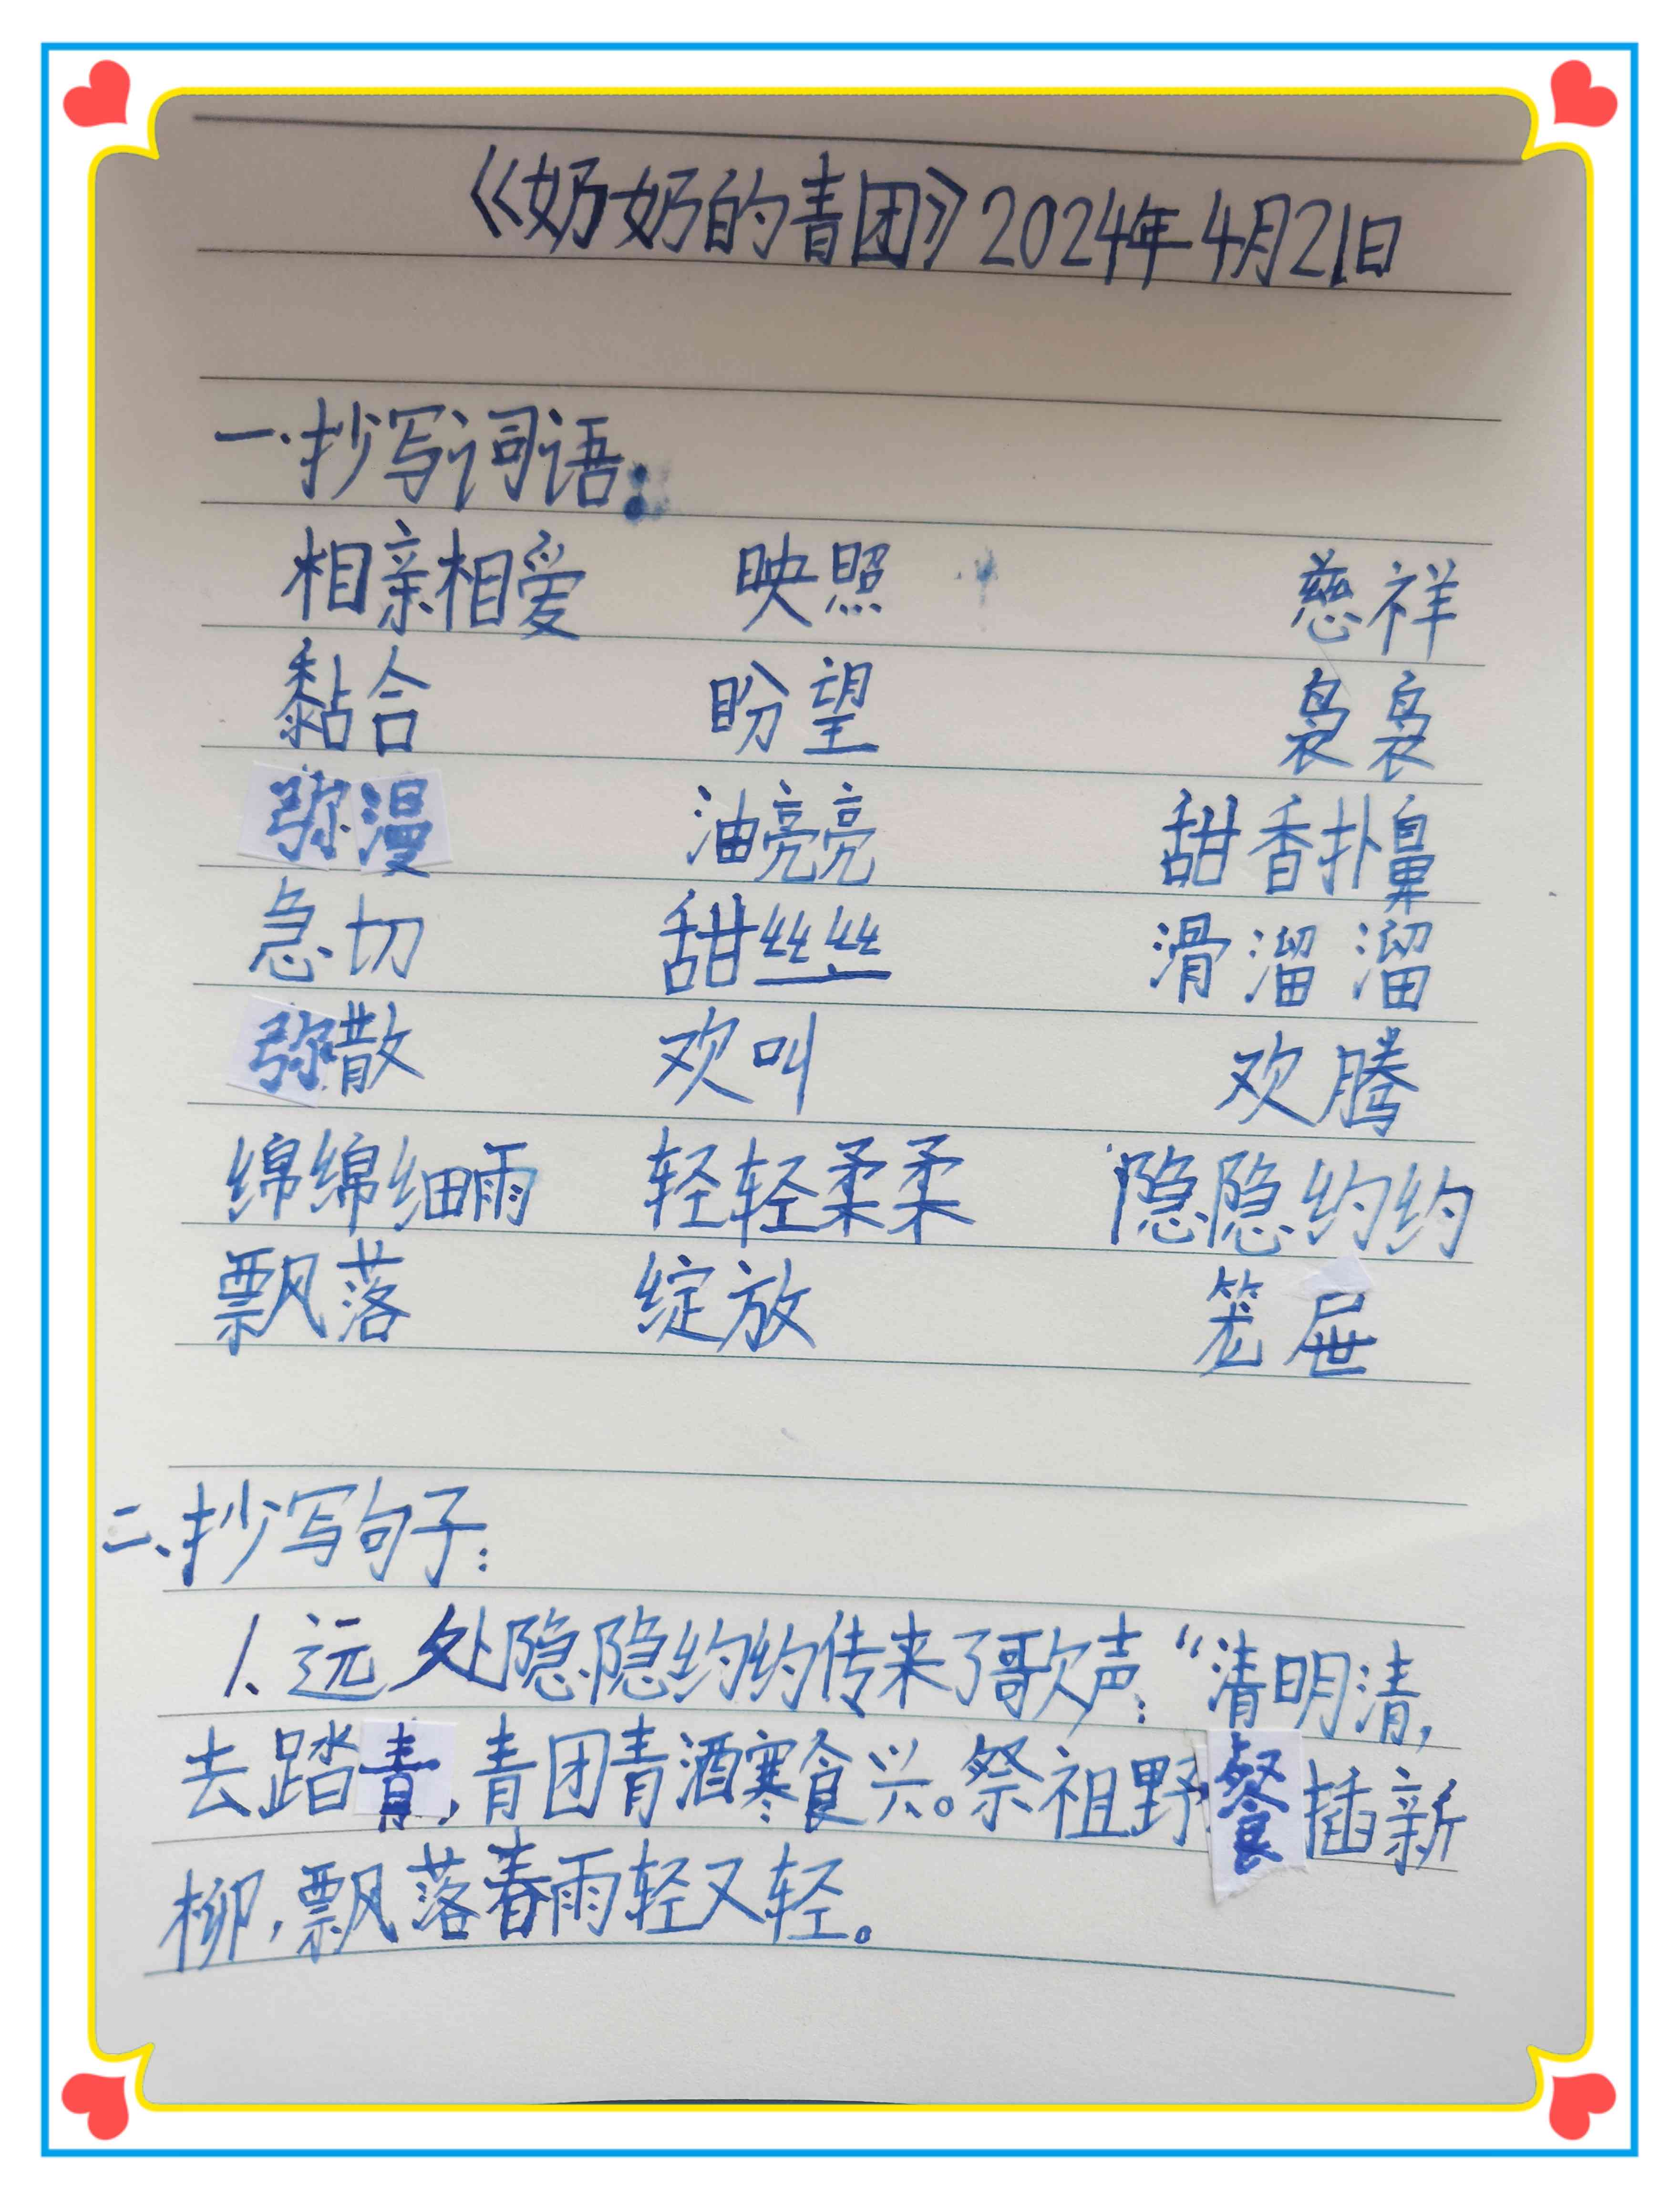 《奶奶的青团》2024年4月21日
一.抄写词语：
相亲相爱 映照 慈祥
黏合 盼望 袅袅
弥漫 油亮亮 甜香扑鼻
急切 甜丝丝 滑溜溜
弥散 欢叫 欢腾
绵绵细雨 轻轻柔柔 隐隐约约
飘落 绽放 笼屉
二、抄写句子：
1、远处隐隐约约传来了歌声：“清明清，
去踏青，青团青酒寒食兴。祭祖野餐插新
柳，飘落春雨轻又轻。